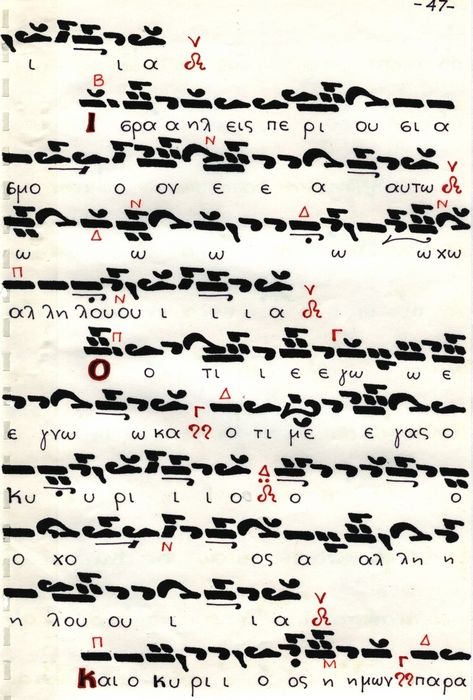 -47-
ι ια
Ισραα ηλ εις πε ρι ου σι α
σμο ο ον ε ε α αυτω
ω ω ω ω ω χω
αλ λη λου ου ι ι ι α
Ο ο τι ι ε ε γω ω ε
ε γνω ω κα ο τι με ε γας ο
Κυ υ ρι ι ι ο ο ο
ο χο ος α αλ λη η
η λου ου ι ι α
Και ο κυ ρι ι ο ος η ημων παρα